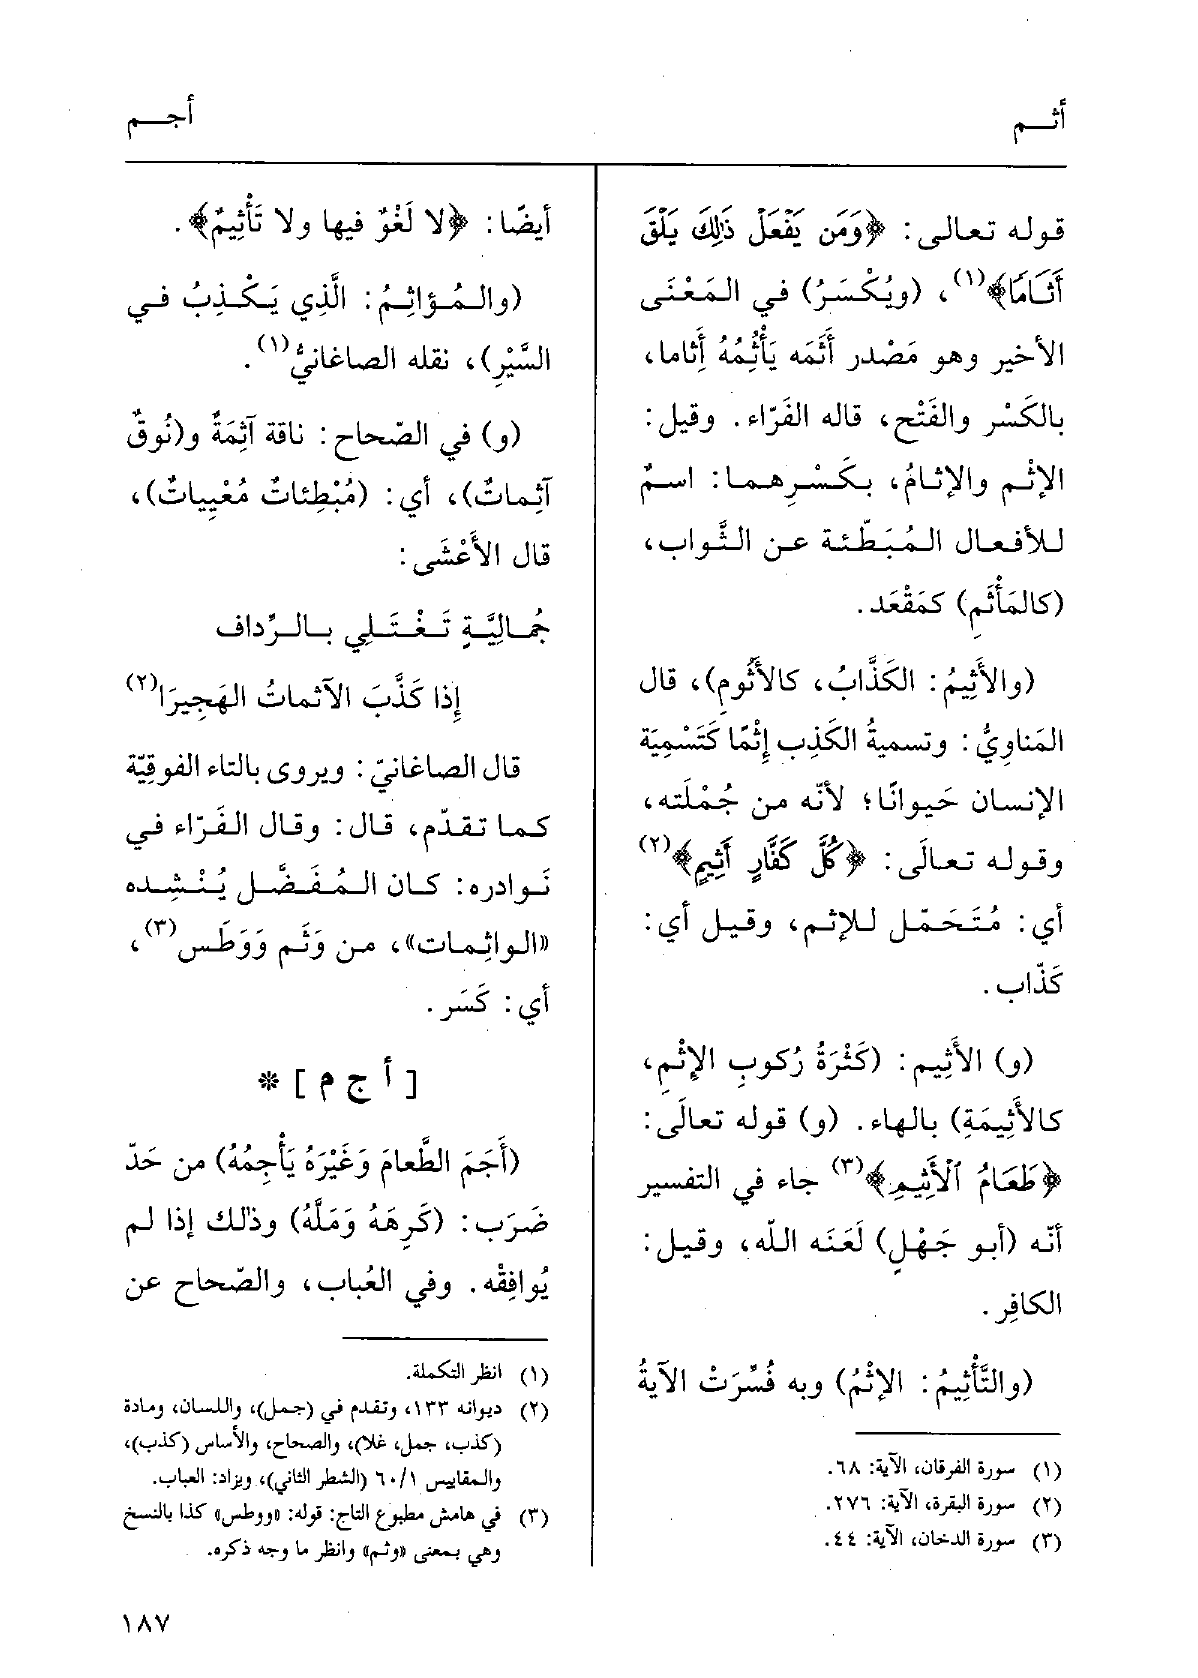 أثـم
أجـم
قوله تعالى: ﴿وَمَن يَفْعَلْ ذَٰلِكَ يَلْقَ
أَثَامًا﴾(١)، (ويُكْسَرُ) في المَعْنَى
الأخير وهو مَصْدر أَثَمَه يَأْثُمُهُ أَثاما،
بالكَسْر والفَتْح، قاله الفَرّاء. وقيل:
الإثْم والإثامُ، بكَسْرِهما: اسمٌ
للأفعال المُبَطّئة عن الثَّواب،
(كالمَأْثَمِ) كمَقْعَد.
(والأَثِيمُ: الكَذَّابُ، كالأَثُومِ)، قال
المَناوِيُّ: وتسميةُ الكَذِب إثْمًا كَتَسْمِيَة
الإنسان حَيوانًا؛ لأنّه من جُمْلَته،
وقوله تعالَى: ﴿كُلَّ كَفَّارٍ أَثِيمٍ﴾(٢)
أي: مُتَحَمّل للإثم، وقيل أي:
كَذّاب.
(و) الأَثِيم: (كَثْرَةُ رُكوبِ الإِثْمِ،
كالأَثِيمَةِ) بالهاء. (و) قوله تعالَى:
﴿طَعَامُ ٱلْأَثِيمِ﴾(٣) جاء في التفسير
أنّه (أبو جَهْلٍ) لَعَنَه اللّه، وقيل:
الكافِر.
(والتَّأْثِيمُ: الإثْمُ) وبه فُسِّرَتْ الآيةُ
(١) سورة الفرقان، الآية: ٦٨.
(٢) سورة البقرة، الآية: ٢٧٦.
(٣) سورة الدخان، الآية: ٤٤.
أيضًا: ﴿لا لَغْوٌ فيها ولا تَأْثِيمٌ﴾.
(والمُؤاثِمُ: الَّذِي يَكْذِبُ في
السَّيْرِ)، نقله الصاغانيُّ(١).
(و) في الصّحاح: ناقة آثِمَةٌ و(نُوقٌ
آثِماتٌ)، أي: (مُبْطِئاتٌ مُعْيِياتٌ)،
قال الأَعْشَى:
جُمَالِيَّةٍ تَغْتَلِي بالرِّداف
إِذا كَذَّبَ الآثماتُ الهَجِيرَا(٢)
قال الصاغانيّ: ويروى بالتاء الفوقيّة
كما تقدّم، قال: وقال الفَرّاء في
نَوادره: كان المُفَضَّل يُنْشِده
«الواثِمات»، من وَثَم وَوَطَس(٣)،
أي: كَسَر.
[ أ ج م ] *
(أَجَمَ الطَّعامَ وَغَيْرَهُ يَأْجِمُهُ) من حَدّ
ضَرَب: (كَرِهَهُ وَمَلَّهُ) وذلك إذا لم
يُوافِقْه. وفي العُباب، والصّحاح عن
(١) انظر التكملة.
(٢) ديوانه ١٣٣، وتقدم في (جمل)، واللسان، ومادة
(كذب، جمل، غلا)، والصحاح، والأساس (كذب)،
والمقاييس ٦٠/١ (الشطر الثاني)، ويزاد: العباب.
(٣) في هامش مطبوع التاج: قوله: «ووطس» كذا بالنسخ
وهي بمعنى «وثم» وانظر ما وجه ذكره.
١٨٧